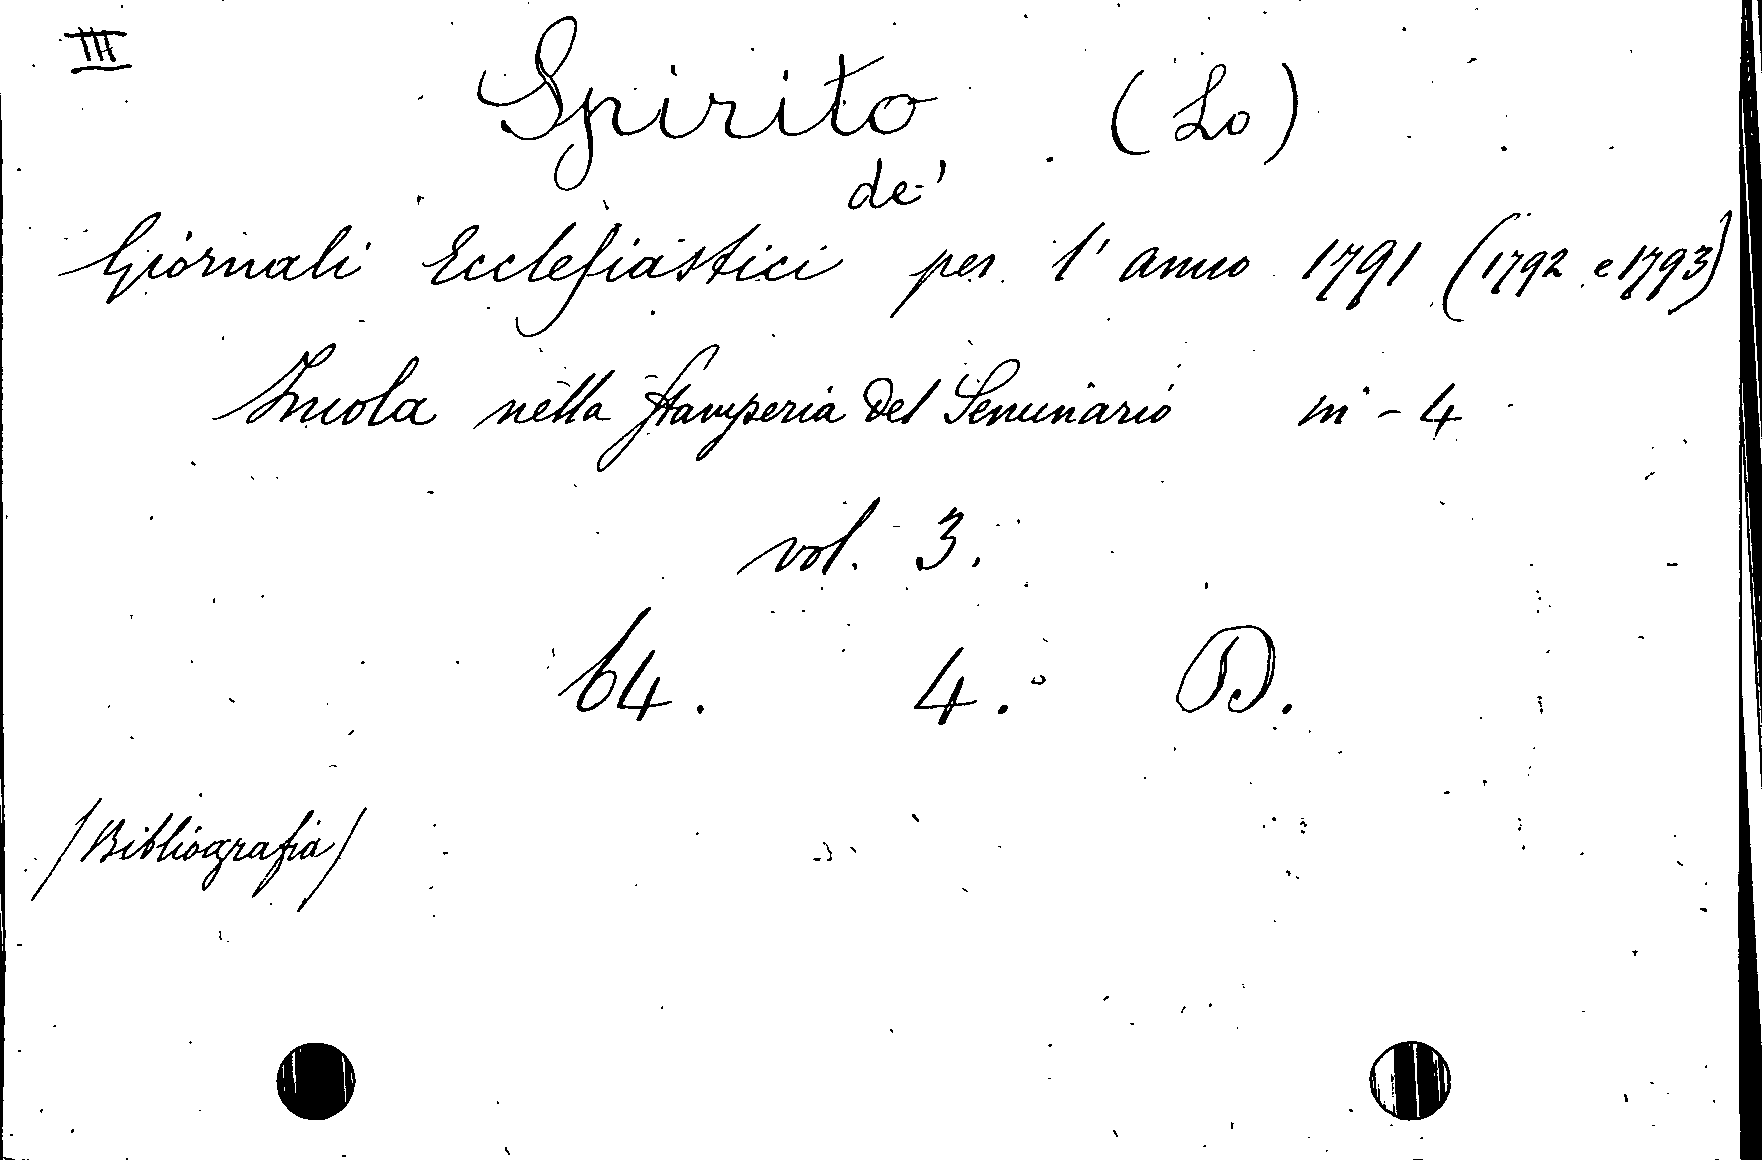 III
Spirito (Lo)
de'
Giornali Ecclesiastici per l'anno 1791 (1792 e 1793)
Imola nella Stamperia del Seminario in-4
vol. 3.
64. 4.° D.
/Bibliografia/